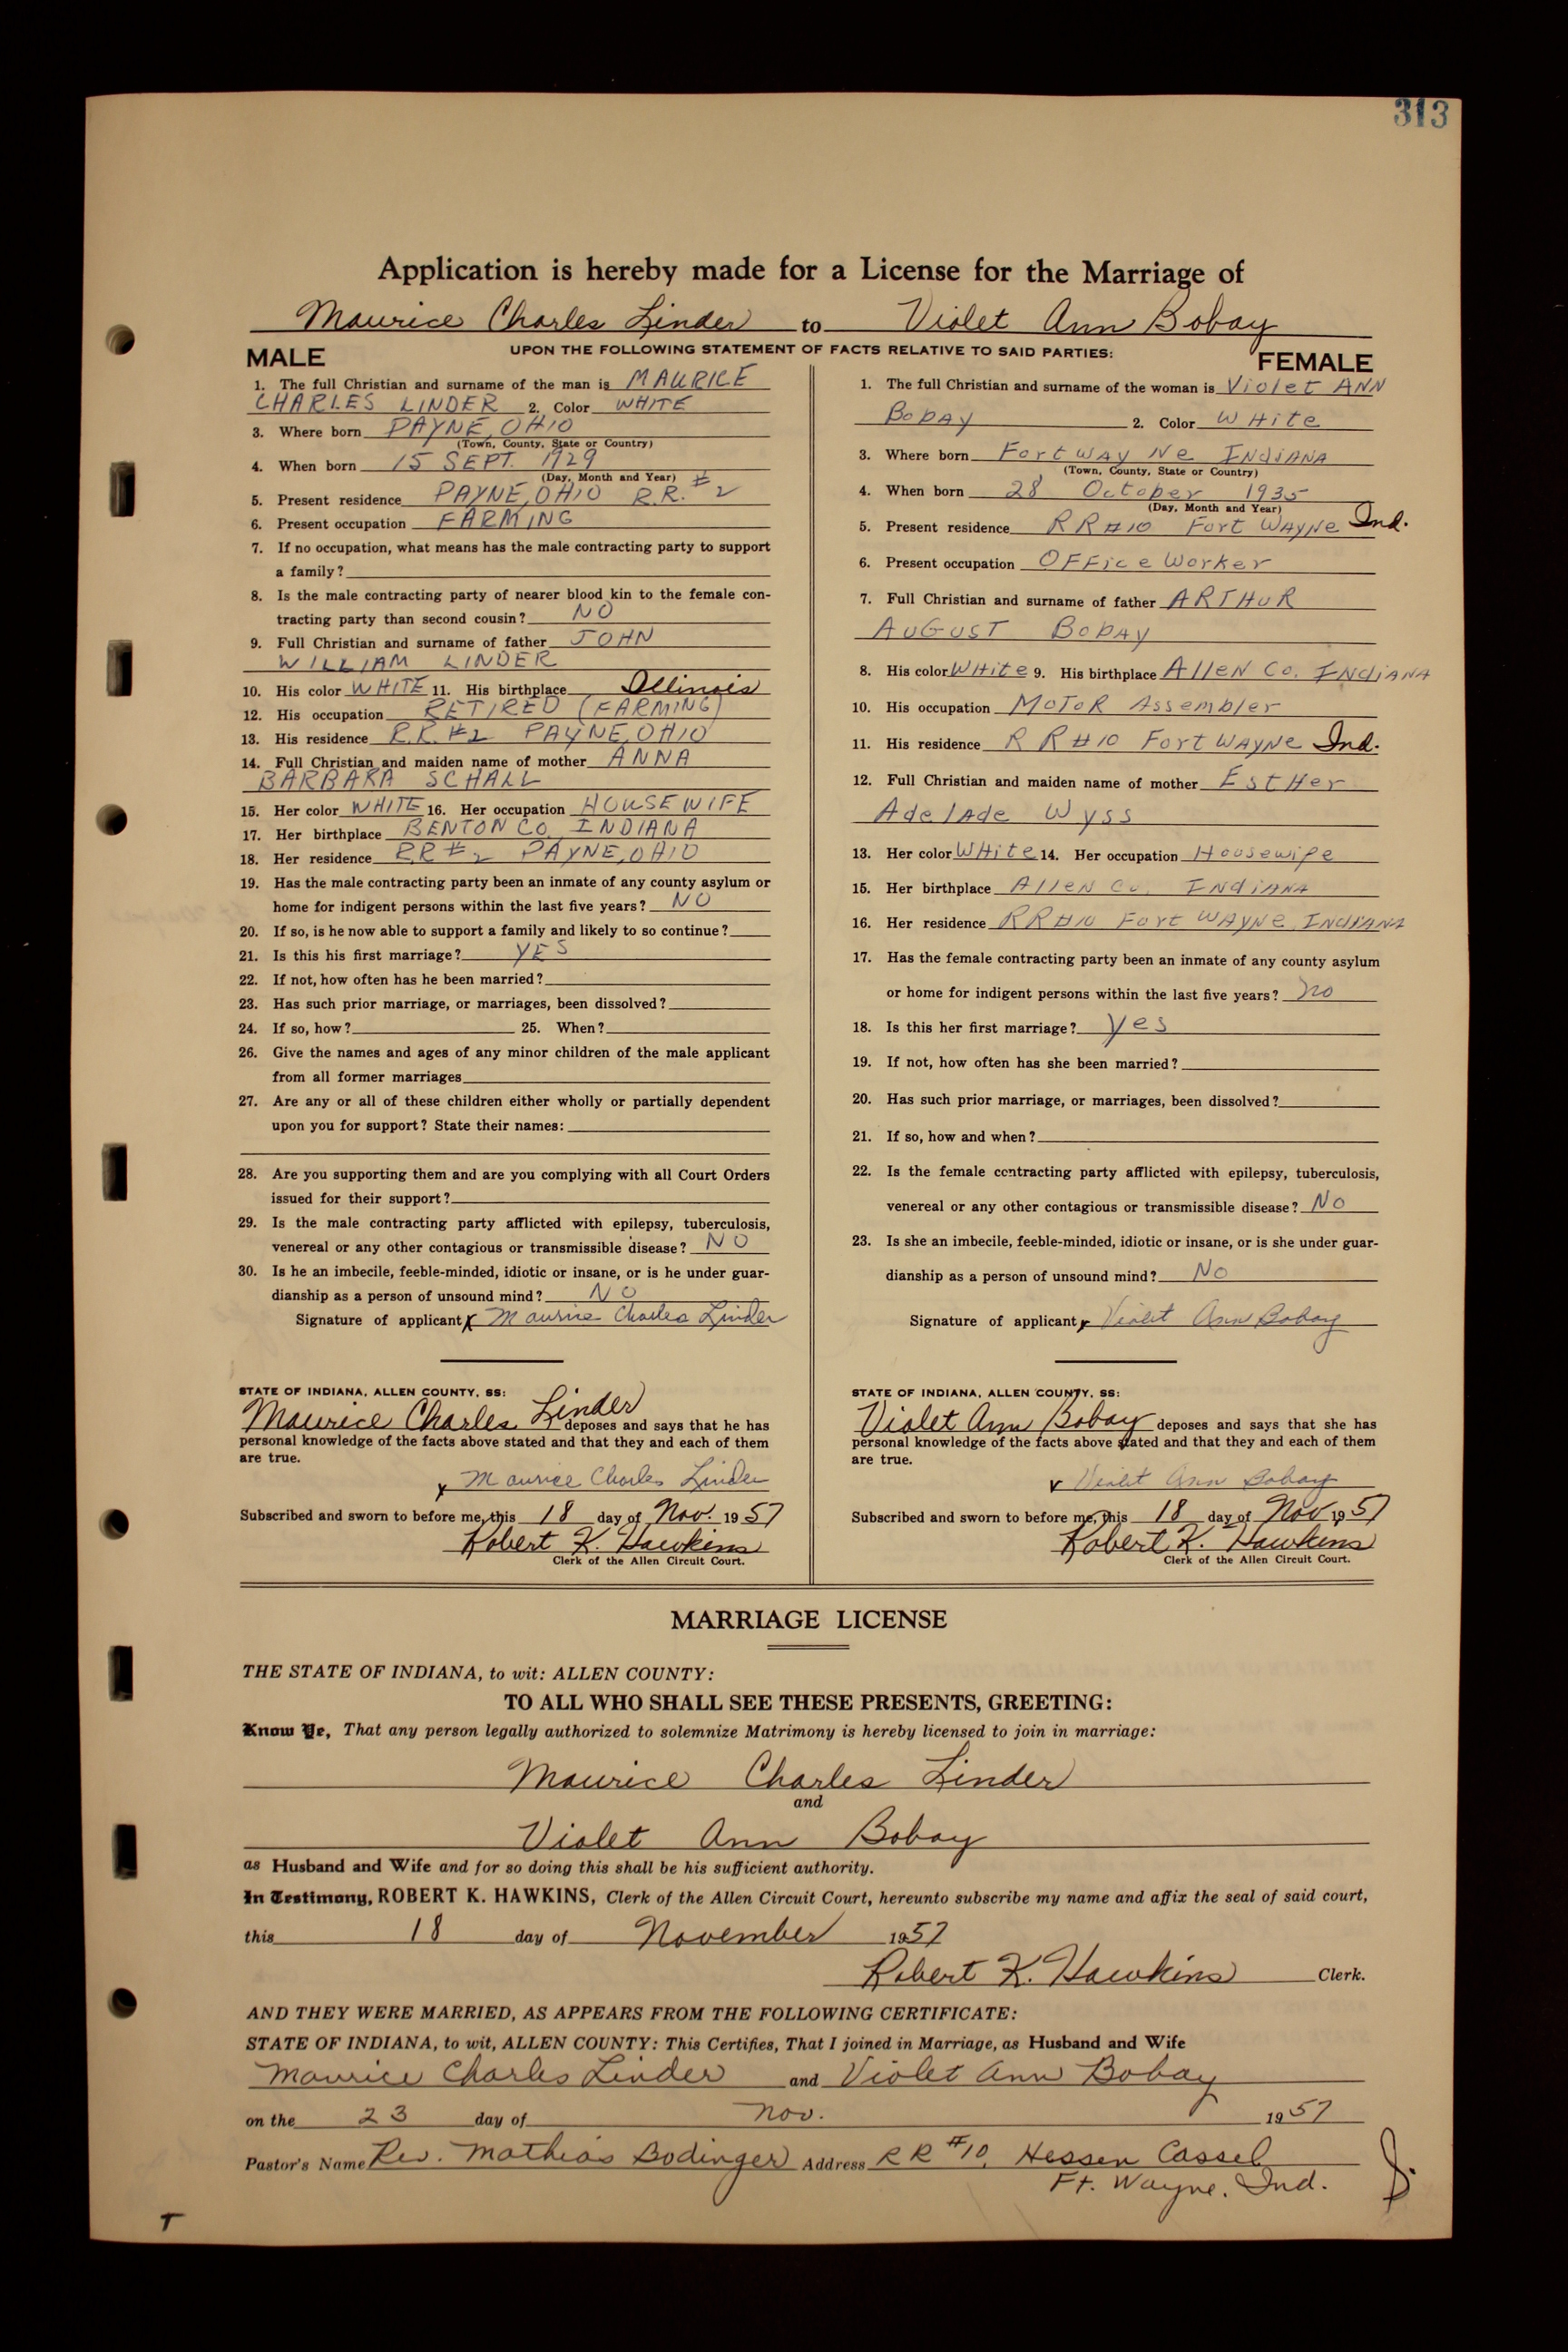 313
Application is hereby made for a License for the Marriage of
Maurice Charles Linder to Violet Ann Bobay
UPON THE FOLLOWING STATEMENT OF FACTS RELATIVE TO SAID PARTIES:
MALE
1. The full Christian and surname of the man is MAURICE
CHARLES LINDER 2. Color WHITE
3. Where born PAYNE, OHIO
(Town, County, State or Country)
4. When born 15 SEPT. 1929
(Day, Month and Year)
5. Present residence PAYNE, OHIO R.R. #2
6. Present occupation FARMING
7. If no occupation, what means has the male contracting party to support
a family?
8. Is the male contracting party of nearer blood kin to the female con-
tracting party than second cousin? NO
9. Full Christian and surname of father JOHN
WILLIAM LINDER
10. His color WHITE 11. His birthplace Illinois
12. His occupation RETIRED (FARMING)
13. His residence R.R. #2 PAYNE, OHIO
14. Full Christian and maiden name of mother ANNA
BARBARA SCHALL
15. Her color WHITE 16. Her occupation HOUSEWIFE
17. Her birthplace BENTON CO. INDIANA
18. Her residence RR #2 PAYNE, OHIO
19. Has the male contracting party been an inmate of any county asylum or
home for indigent persons within the last five years? NO
20. If so, is he now able to support a family and likely to so continue?
21. Is this his first marriage? YES
22. If not, how often has he been married?
23. Has such prior marriage, or marriages, been dissolved?
24. If so, how? 25. When?
26. Give the names and ages of any minor children of the male applicant
from all former marriages
27. Are any or all of these children either wholly or partially dependent
upon you for support? State their names:
28. Are you supporting them and are you complying with all Court Orders
issued for their support?
29. Is the male contracting party afflicted with epilepsy, tuberculosis,
venereal or any other contagious or transmissible disease? NO
30. Is he an imbecile, feeble-minded, idiotic or insane, or is he under guar-
dianship as a person of unsound mind? NO
Signature of applicant x Maurice Charles Linder
STATE OF INDIANA, ALLEN COUNTY, SS:
Maurice Charles Linder deposes and says that he has
personal knowledge of the facts above stated and that they and each of them
are true.
x Maurice Charles Linder
Subscribed and sworn to before me, this 18 day of Nov. 1957
Robert K. Hawkins
Clerk of the Allen Circuit Court.
FEMALE
1. The full Christian and surname of the woman is Violet ANN
BobAy 2. Color WHite
3. Where born Fort WAyNe INdiANA
(Town, County, State or Country)
4. When born 28 October 1935
(Day, Month and Year)
5. Present residence RR#10 Fort WAyNe Ind.
6. Present occupation OFFice Worker
7. Full Christian and surname of father ARTHuR
AuGUST BobAy
8. His color WHite 9. His birthplace AlleN Co. INdiANA
10. His occupation MOToR Assembler
11. His residence R R #10 Fort WAyNe Ind.
12. Full Christian and maiden name of mother EstHer
AdelAde Wyss
13. Her color WHite 14. Her occupation Housewife
15. Her birthplace AlleN Co. INdiANA
16. Her residence RR#10 Fort WAyNe, INdiANA
17. Has the female contracting party been an inmate of any county asylum
or home for indigent persons within the last five years? no
18. Is this her first marriage? yes
19. If not, how often has she been married?
20. Has such prior marriage, or marriages, been dissolved?
21. If so, how and when?
22. Is the female contracting party afflicted with epilepsy, tuberculosis,
venereal or any other contagious or transmissible disease? No
23. Is she an imbecile, feeble-minded, idiotic or insane, or is she under guar-
dianship as a person of unsound mind? No
Signature of applicant x Violet Ann Bobay
STATE OF INDIANA, ALLEN COUNTY, SS:
Violet Ann Bobay deposes and says that she has
personal knowledge of the facts above stated and that they and each of them
are true.
x Violet Ann Bobay
Subscribed and sworn to before me, this 18 day of Nov 1957
Robert K. Hawkins
Clerk of the Allen Circuit Court.
MARRIAGE LICENSE
THE STATE OF INDIANA, to wit: ALLEN COUNTY:
TO ALL WHO SHALL SEE THESE PRESENTS, GREETING:
Know Ye, That any person legally authorized to solemnize Matrimony is hereby licensed to join in marriage:
Maurice Charles Linder
and
Violet Ann Bobay
as Husband and Wife and for so doing this shall be his sufficient authority.
In Testimony, ROBERT K. HAWKINS, Clerk of the Allen Circuit Court, hereunto subscribe my name and affix the seal of said court,
this 18 day of November 1957
Robert K. Hawkins Clerk.
AND THEY WERE MARRIED, AS APPEARS FROM THE FOLLOWING CERTIFICATE:
STATE OF INDIANA, to wit, ALLEN COUNTY: This Certifies, That I joined in Marriage, as Husband and Wife
Maurice Charles Linder and Violet Ann Bobay
on the 23 day of Nov. 1957
Pastor's Name Rev. Mathias Bodinger Address RR #10, Hessen Cassel
Ft. Wayne, Ind.
T